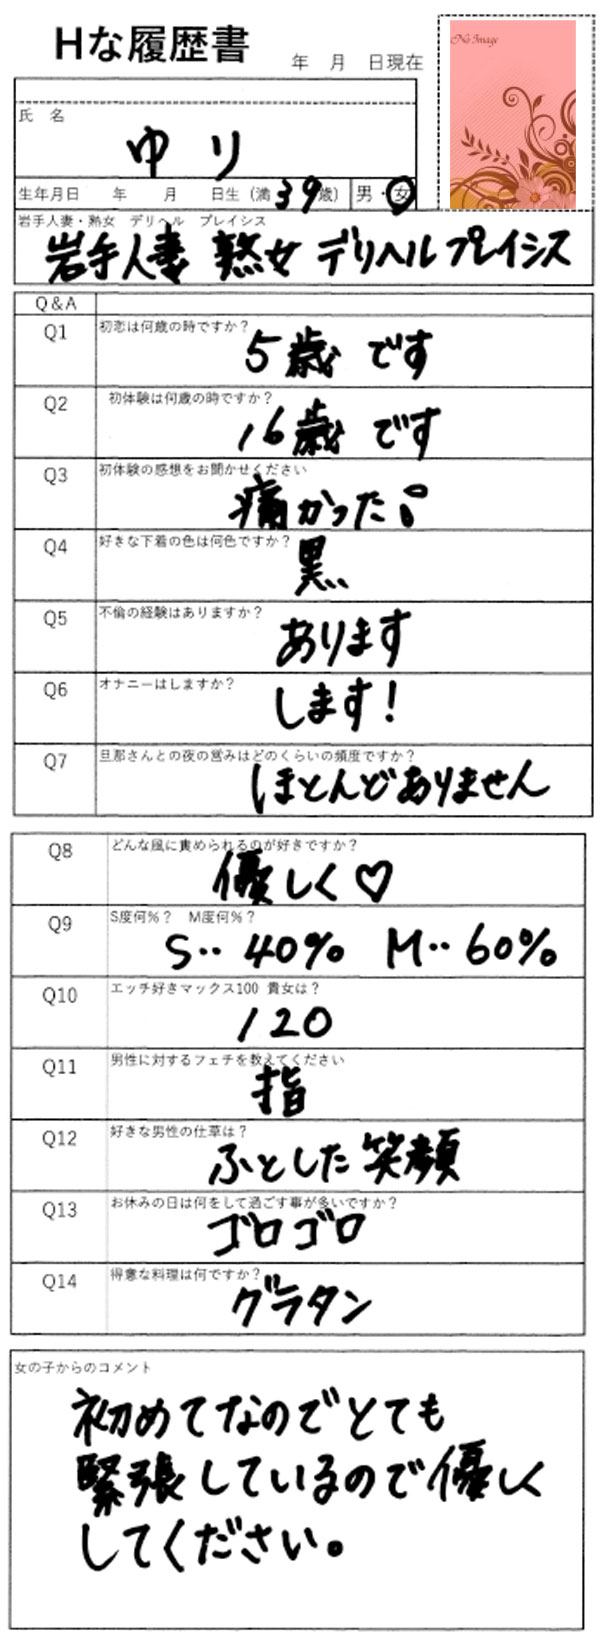 Hな履歴書
年 月 日現在
No Image
氏 名
ゆり
生年月日 年 月 日生 (満39歳) 男・女
岩手人妻・熟女 デリヘル プレイシス
岩手人妻 熟女 デリヘル プレイシス
Q&A
Q1 初恋は何歳の時ですか?
5歳です
Q2 初体験は何歳の時ですか?
16歳です
Q3 初体験の感想をお聞かせください
痛かった!
Q4 好きな下着の色は何色ですか?
黒
Q5 不倫の経験はありますか?
あります
Q6 オナニーはしますか?
します!
Q7 旦那さんとの夜の営みはどのくらいの頻度ですか?
ほとんどありません
Q8 どんな風に責められるのが好きですか?
優しく♡
Q9 S度何%? M度何%?
S‥40% M‥60%
Q10 エッチ好きマックス100 貴女は?
120
Q11 男性に対するフェチを教えてください
指
Q12 好きな男性の仕草は?
ふとした笑顔
Q13 お休みの日は何をして過ごす事が多いですか?
ゴロゴロ
Q14 得意な料理は何ですか?
グラタン
女の子からのコメント
初めてなのでとても
緊張しているので優しく
してください。